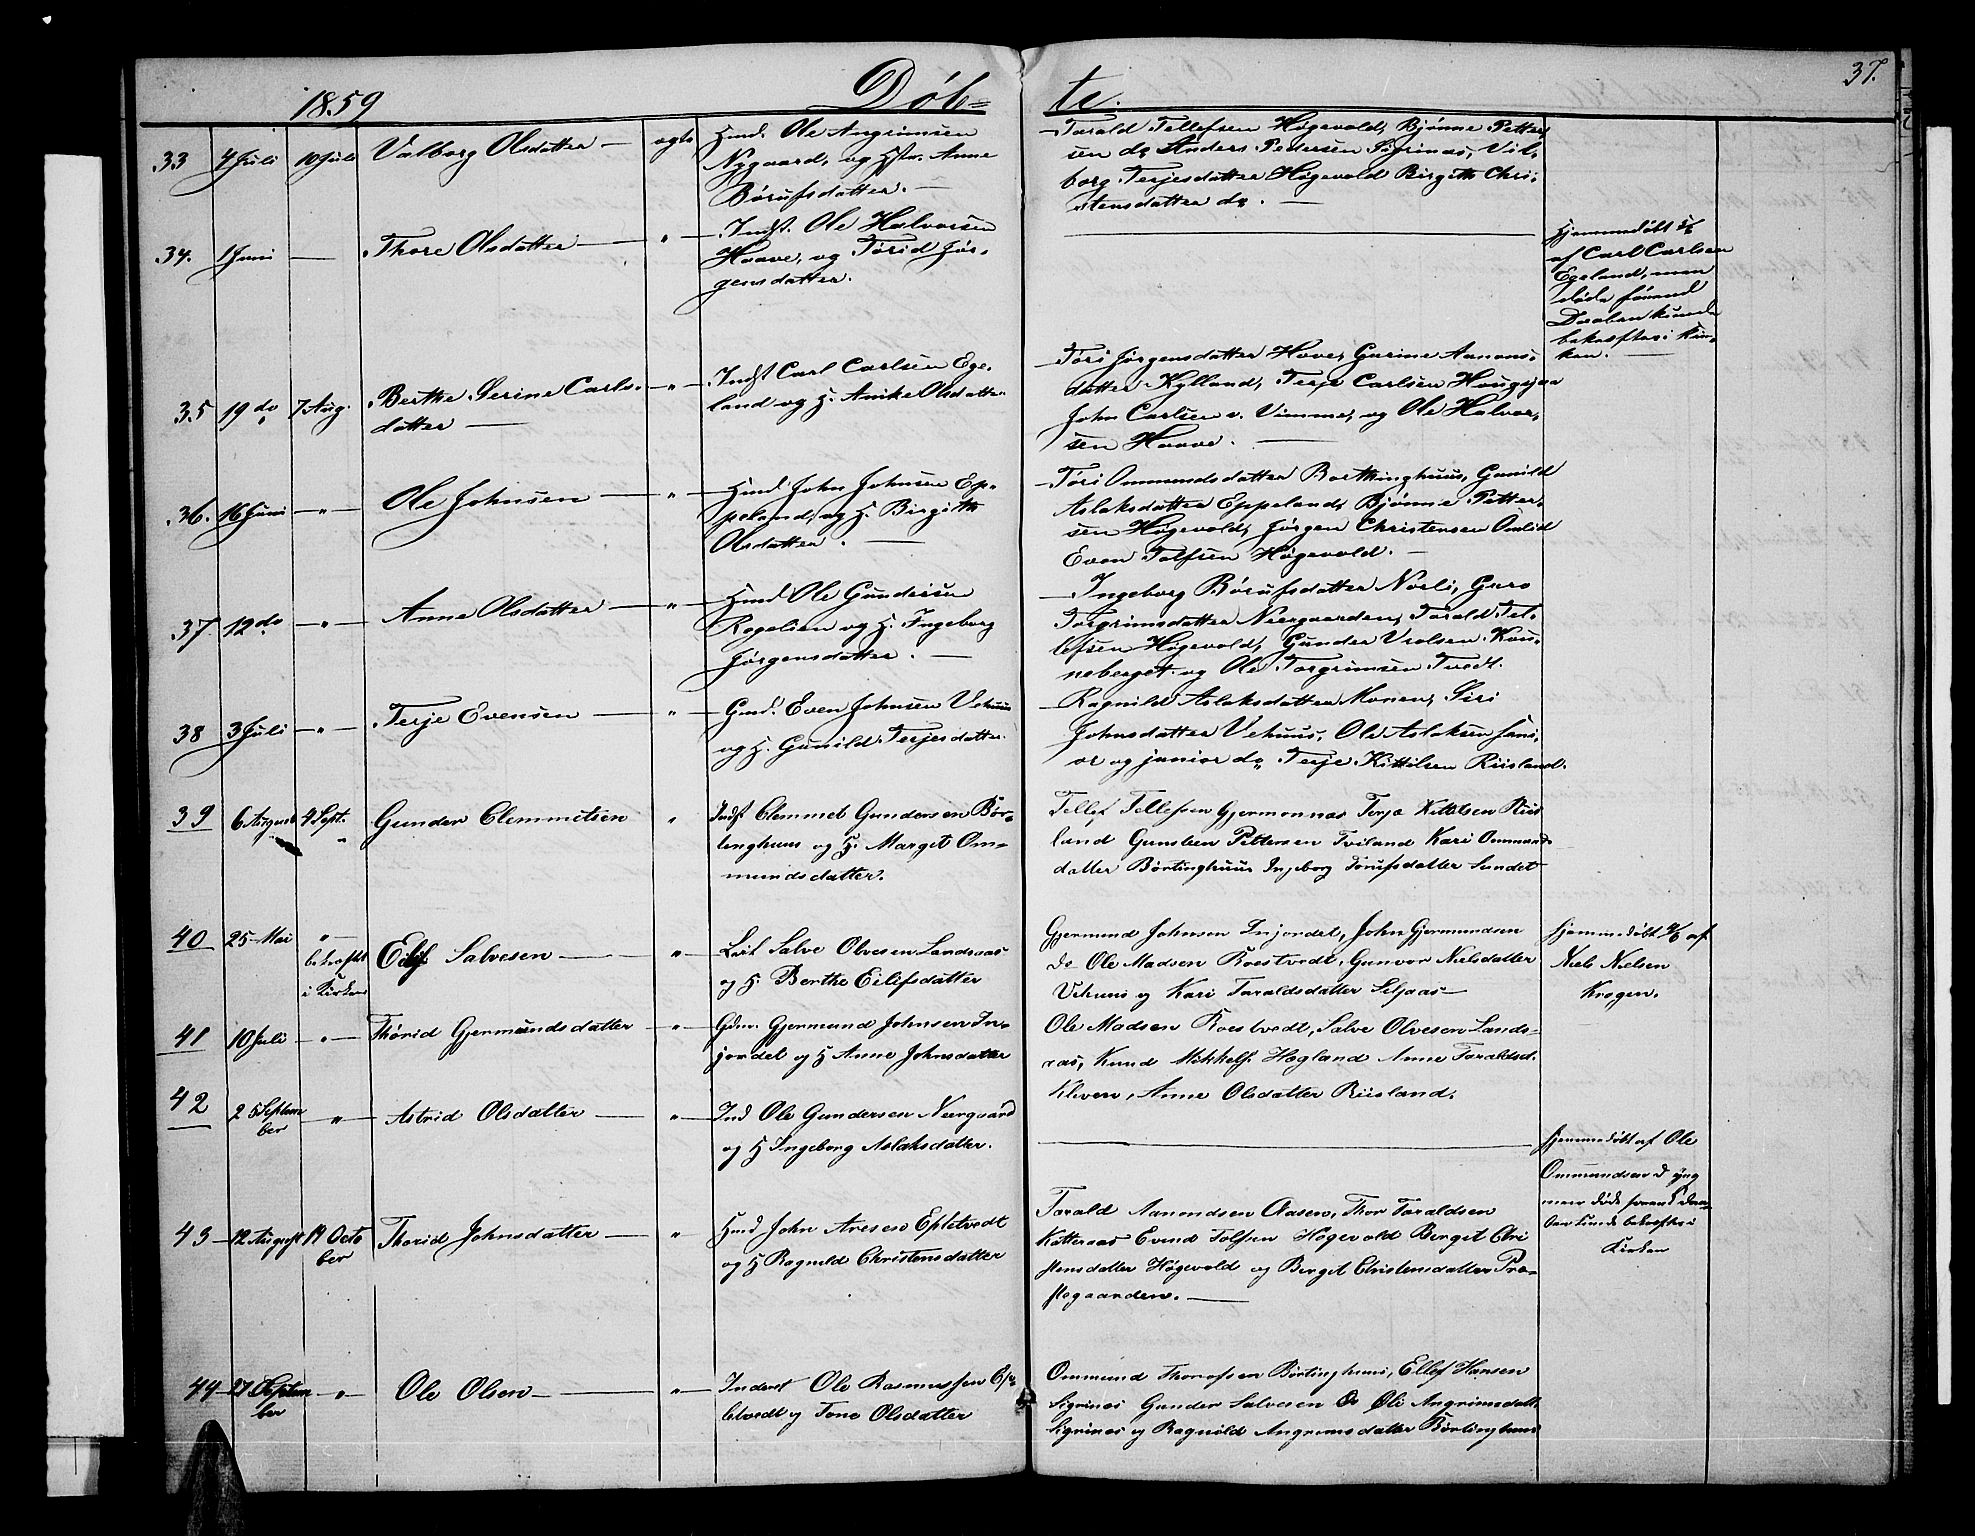 1859 Døb= te. 37.
33 4 Juli 10 Juli Valborg Olsdatter — ægte Gmd. Ole Angrimsen
Nygaard, og Hstr. Anne
Børufsdatter. —
Tarald Tellefsen Høgevold, Bjønne Petter
sen do Anders Pedersen Sigrinæs, Vil,
borg Terjesdatter Høgevold Birgith Chri,
stensdatter do. —
34. 1 Juni — Thore Olsdatter — " — Indst. Ole Halvorsen
Haave, og Tørid Jør-
gensdatter.
Hjemmedøbt
af Carl Carlsen
Egeland, men
døde førend
Daaben kunde
bekræftes i Kir-
ken. —
35 19 do 7 Aug. Berthe Serine Carls-
datter —
— " — Indst Carl Carlsen Ege-
land og H. Anike Olsdatter
Tøri Jørgensdatter Hove, Gurine Aanons-
datter Kylland, Terje Carlsen Hougsjaa
John Carlsen v. Vimme, og Ole Halvor,
sen Haave. —
36. 16 Juni — " — Ole Johnsen — " — Gmd. John Johnsen Ep-
peland, og H. Birgith
Olsdatter. —
Tøri Ommundsdatter Børtinghuus, Gunild
Aslaksdatter Eppeland, Bjønne Petter-
sen Høgevold, Jørgen Christensen Omlid
Even Tolfsen Høgevold. —
37 12 do — " — Anne Olsdatter — " — Gmd Ole Gundersen
Rogelien og H. Ingeborg
Jørgensdatter. —
Ingeborg Børufsdatter Norli, Guro
Torgrimsdatter Neergaarden, Tarald Tel-
lefsen Høgevold, Gunder
neberget og Ole Torgrimsen Tvedt.
38 3 Juli — " — Terje Evensen — " — Gmd. Even Johnsen Vehuus
og H. Gunild Terjesdatter.
Ragnild Aslaksdatter Monen, Siri
Johnsdatter Vehuus, Ole Aslaksen seni,
or og junior do, Terje Kittilsen Riisland.
39 6 August 4 Sept. Gunder Clemmetsen " Indst Clemmet Gundersen Bør-
tinghuus og H. Margit Om-
mundsdatter.
Tellef Tellefsen Gjermonnæs Terje Kittilsen Riis
land Gunsteen Pettersen Tveiland Kari Ommunds
datter Børtinghuus Ingeborg Torufsdatter Sundet
40 25 Mai " —
bekræftet
i Kirken
Eilif Salvesen — " — Leil Salve Olvesen Landsaas
og H. Berthe Eilifsdatter
Gjermund Johnsen Injordet, John Gjermundsen
do Ole Madsen Roestvedt, Gunvor Nielsdatter
Vehuus og Kari Taraldsdatter Seljaas —
Hjemmedøbt af
Niels Nielsen
Kragen.
41 10 Juli — " — Thørid Gjermundsdatter — " — Gdm. Gjermund Johnsen In-
jordet og H Anne Johnsdatter
Ole Madsen Roestvedt, Salve Olvesen Lands-
aas, Knud Mikkels. Hogland Anne Taraldsd.
Kleven, Anne Olsdatter Riisland.
42 25 Septem
ber
— " — Astrid Olsdatter — " — Ind Ole Gundersen Neergaard
og H Ingeborg Aslaksdatter.
Hjemmedøbt af Ole
Ommundsen
men døde forend Daa-
ben kunde bekræftes i
Kirken
43 12 August 19 Octo
ber
Thorid Johnsdatter — " Gmd John Aresen Epletvedt
og H Ragnild Christensdatter
Tarald Aanondsen Aasen, Thor Taraldsen
Katteraas Evend Tolfsen Høgevold Berget Chri
stensdatter Høgevold og Berget Christensdatter Præ-
stegaarden. —
44 27 Septem
ber
— " — Ole Olsen — " — Inderst Ole Rasmussen Ep-
letvedt og Tone Olsdatter
Ommund Thorufsen Børtinghuus, Ellef Hansen
Sigrinæs Gunder Salvesen do Oli Angrimsdatt
Sigrinæs og Ragnild Angrimsdatter Børtinghuus